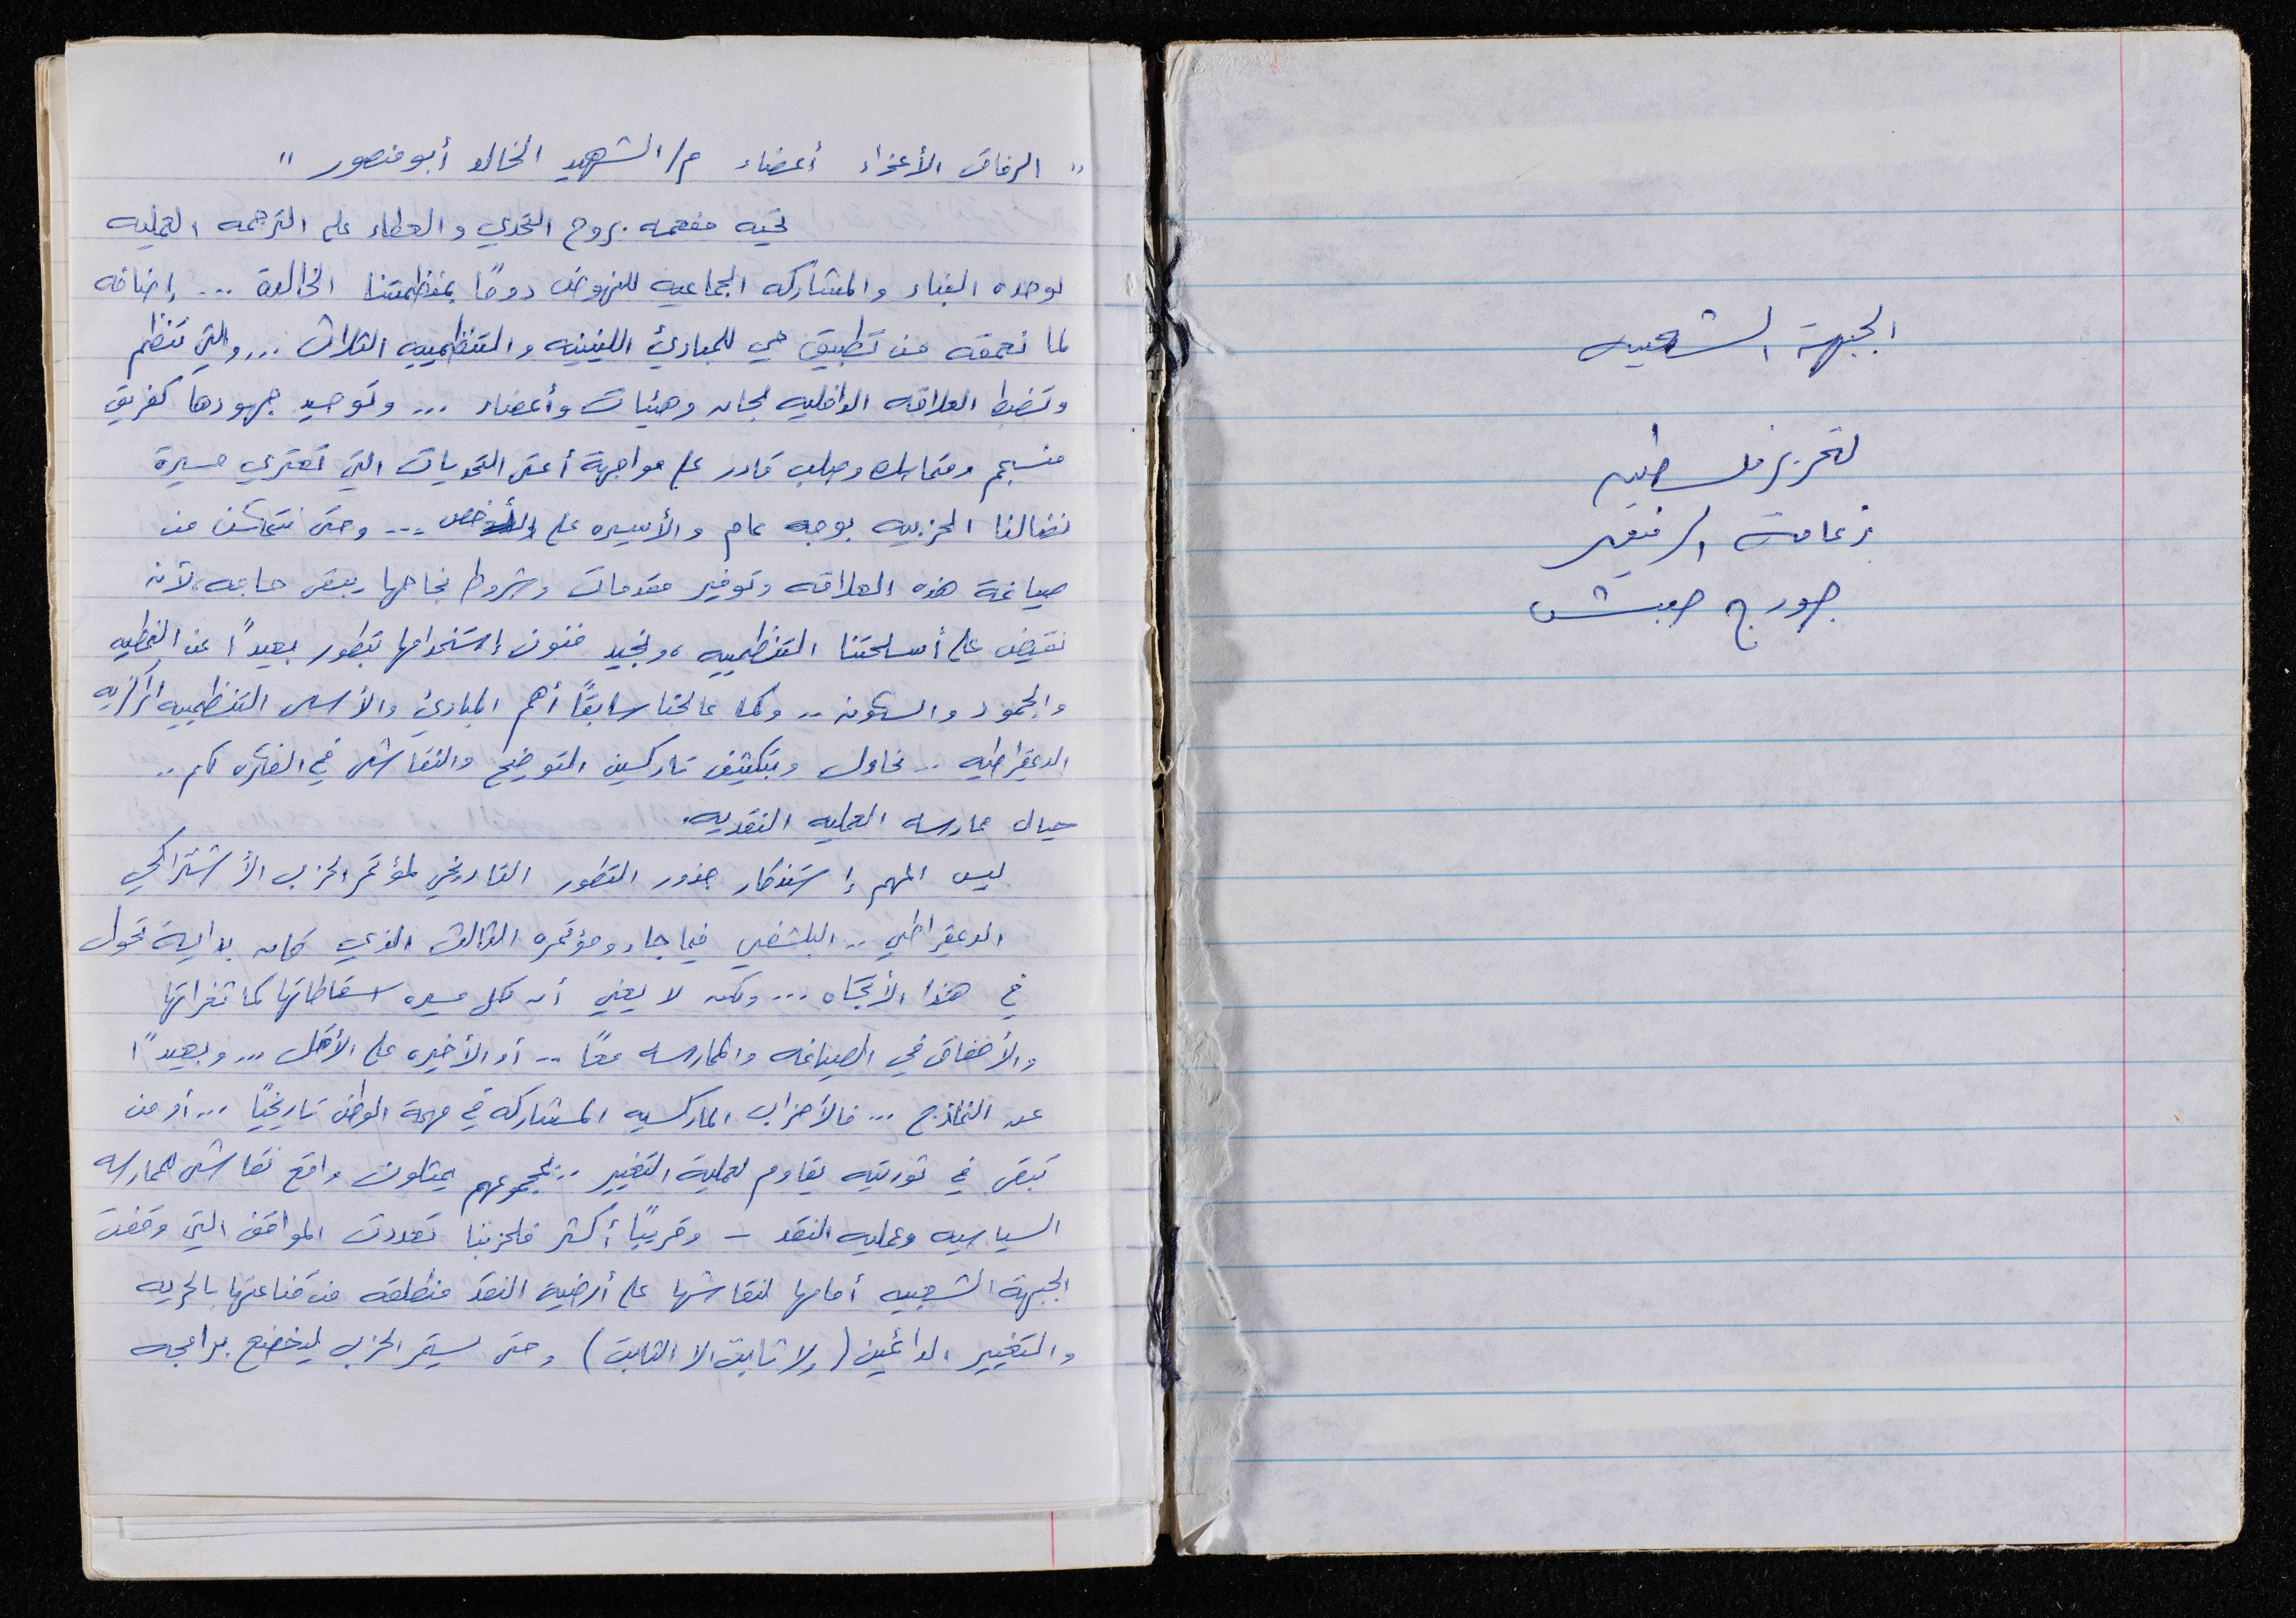 الجبهة الشعبيه
لتحرير فلسطين
زعامة الرفيق
جورج حبش
" الرفاق الأعزاء أعضاء م/الشهيد الخالد أبو منصور "
تحيه مفعمه بروح التحدي والعطاء على الترجمه العمليه
لوحده البناء والمشاركه الجماعيه للنهوض دومًا بمنظمتنا الخالدة ... إضافه
لما نعمقه من تطبيق حي للمبادئ اللينينيه والتنظيميه الثلاث ... والتي تنظم
وتضبط العلاقه الداخليه لجان وهيئات وأعضاء ... وتوحيد جهودها كفريق
منسجم ومتماسك وصلب قادر على مواجهة أعتى التحديات التي تعتري مسيرة
نضالنا الحزبيه بوجه عام والأسيره على الأخص ... وحتى نتمكن من
صياغة هذه العلاقه وتوفير مقدمات وشروط نجاحها يبقى حاجه، لأن
نقبض على أسلحتنا التنظيميه، ونجيد فنون إستخدامها بتطور بعيدًا عن النمطيه
والجمود والسكون .. وكما عالجنا سابقًا أهم المبادئ والأسس التنظيميه المركزيه
الديمقراطيه .. نحاول وبتكثيف تاركين التوضيح والنقاش في الفقره لكم ..
حيال ممارسه العمليه النقديه.
ليس المهم إستذكار جذور التطور التاريخي لمؤتمر الحزب الأشتراكي
الديمقراطي .. البلشفي فيما جاء ومؤتمره الثالث الذي كان بداية تحول
في هذا الأتجاه ... ولكن لا يعني أن لكل مسيره اسقاطاتها كما ثغراتها
والأخفاق في الصياغه والممارسه معًا .. أو الأخيره على الأقل ... وبعيدًا
عن النماذج ... فالأحزاب الماركسيه المشاركه في مهمة الوطن تاريخيًا ... أو من
تبقى في ثوريته يقاوم لعملية التغيير .. بمجموعهم يمثلون واقع نقاش للممارسه
السياسيه وعمليه النقد - وقريبًا أكثر فلحزبنا تعددت المواقف التي وقفت
الجبهة الشعبيه أمامها لنقاشها على أرضية النقد منطلقه من قناعتها بالحريه
والتغيير الدائمين (ولا ثابت الا الثابت) وحتى يستمر الحزب ليخضع برامجه